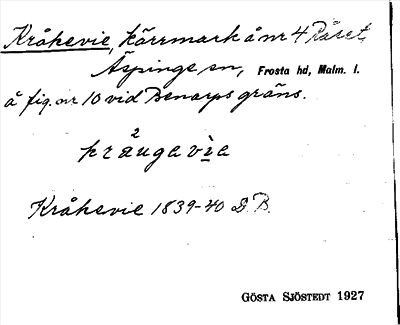 Kråkevie, kärrmark å nr 4 Råset,
Äspinge sn, Frosta hd, Malm. l.
å fig. nr 10 vid Benarps gräns.
2
krăugavìa
Kråkevie 1839-40 D.B.
GÖSTA SJÖSTEDT 1927